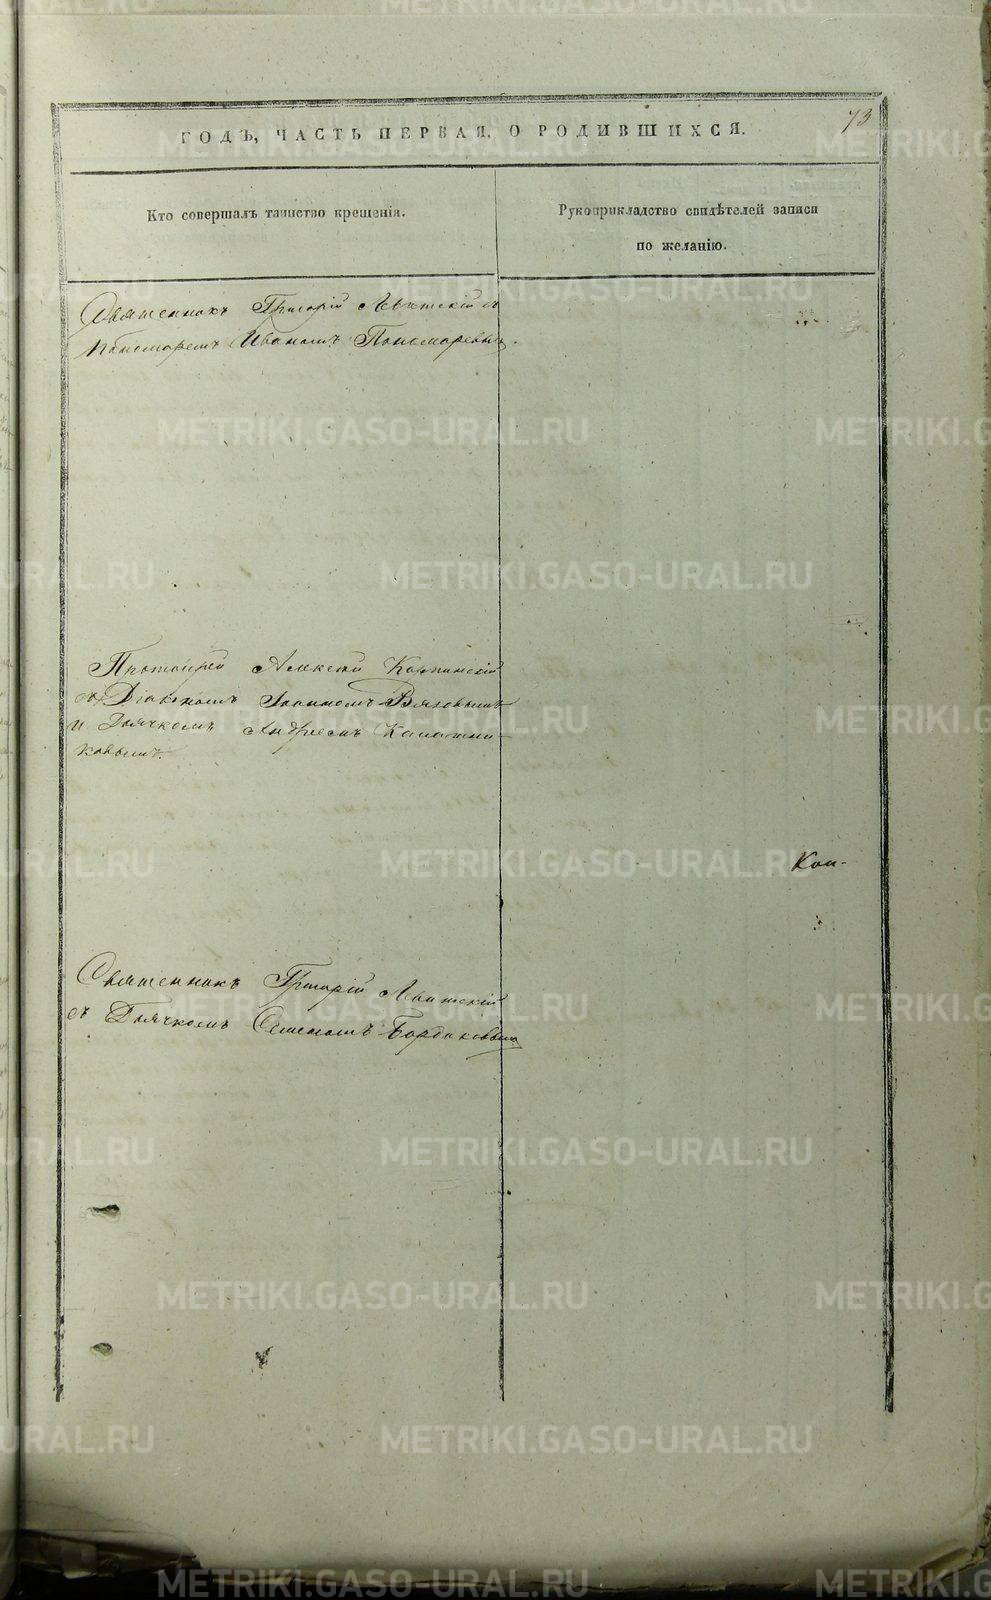 73
ГОДЪ, ЧАСТЬ ПЕРВАЯ, О РОДИВШИХСЯ.
Кто совершалъ таинство крещенія.
Рукоприкладство свидѣтелей записи
по желанію.
Священникъ Григорій Левитскій съ
Пономаремъ Иваномъ Пономаревымъ.
Протоіерей Алексій Карпинскій
съ Діакономъ Іоанномъ Вяловымъ
и Дьячкомъ Андреемъ Калашни-
ковымъ.
Кон-
Священникъ Григорій Левитскій
съ Дьячкомъ Семеномъ Бордаковымъ
METRIKI.GASO-URAL.RU